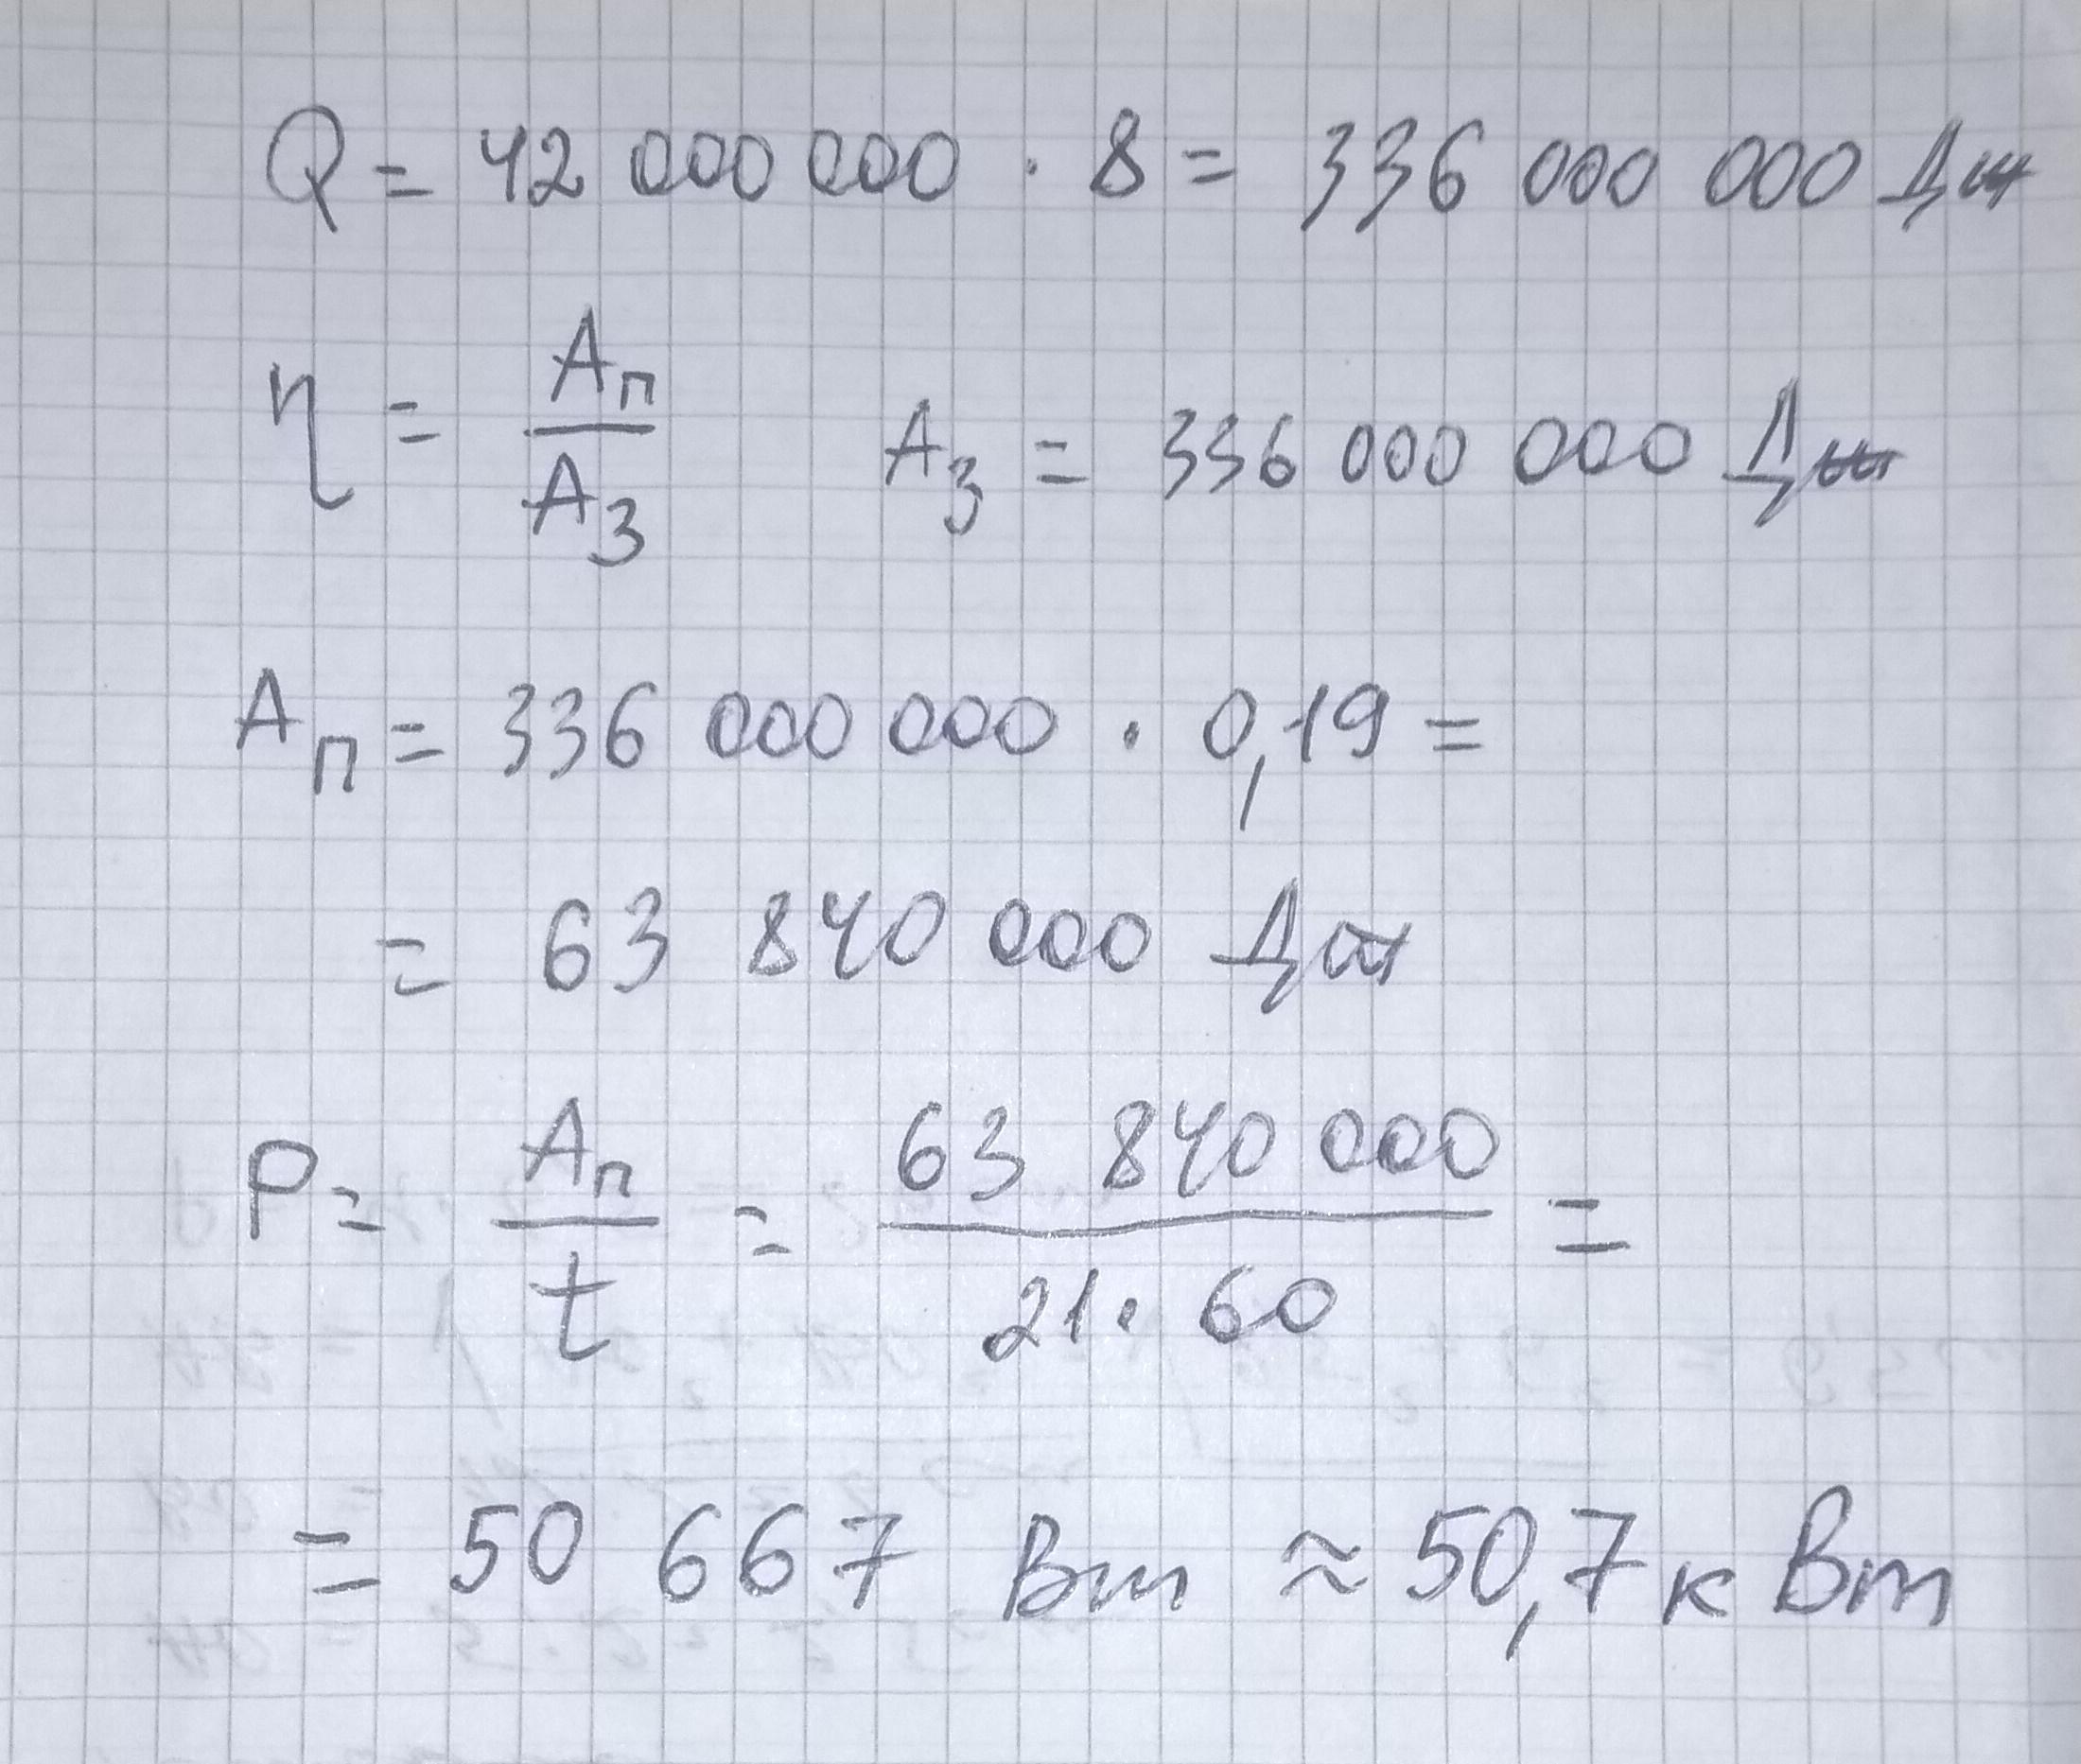 Q = 42 000 000 · 8 = 336 000 000 Дж
η = Aп / Aз   Aз = 336 000 000 Дж
Aп = 336 000 000 · 0,19 =
= 63 840 000 Дж
P = Aп / t = 63 840 000 / 21 · 60 =
= 50 667 Вт ≈ 50,7 кВт